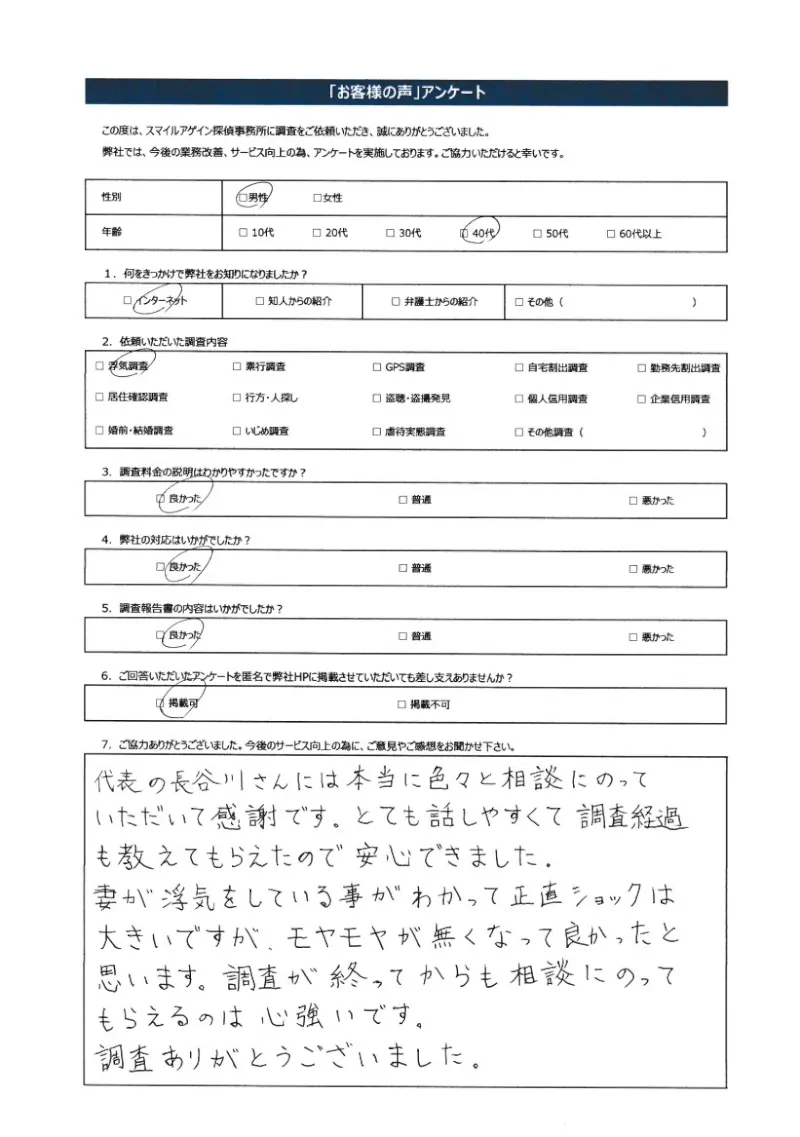 「お客様の声」アンケート
この度は、スマイルアゲイン探偵事務所に調査をご依頼いただき、誠にありがとうございました。
弊社では、今後の業務改善、サービス向上の為、アンケートを実施しております。ご協力いただけると幸いです。
性別 □男性 □女性
年齢 □ 10代 □ 20代 □ 30代 □ 40代 □ 50代 □ 60代以上
1．何をきっかけで弊社をお知りになりましたか？
□ インターネット □ 知人からの紹介 □ 弁護士からの紹介 □ その他（ ）
2．依頼いただいた調査内容
□ 浮気調査 □ 素行調査 □ GPS調査 □ 自宅割出調査 □ 勤務先割出調査
□ 居住確認調査 □ 行方・人探し □ 盗聴・盗撮発見 □ 個人信用調査 □ 企業信用調査
□ 婚前・結婚調査 □ いじめ調査 □ 虐待実態調査 □ その他調査（ ）
3．調査料金の説明はわかりやすかったですか？
□ 良かった □ 普通 □ 悪かった
4．弊社の対応はいかがでしたか？
□ 良かった □ 普通 □ 悪かった
5．調査報告書の内容はいかがでしたか？
□ 良かった □ 普通 □ 悪かった
6．ご回答いただいたアンケートを匿名で弊社HPに掲載させていただいても差し支えありませんか？
□ 掲載可 □ 掲載不可
7．ご協力ありがとうございました。今後のサービス向上の為に、ご意見やご感想をお聞かせ下さい。
代表の長谷川さんには本当に色々と相談にのって
いただいて感謝です。とても話しやすくて調査経過
も教えてもらえたので安心できました。
妻が浮気をしている事がわかって正直ショックは
大きいですが、モヤモヤが無くなって良かったと
思います。調査が終ってからも相談にのって
もらえるのは心強いです。
調査ありがとうございました。